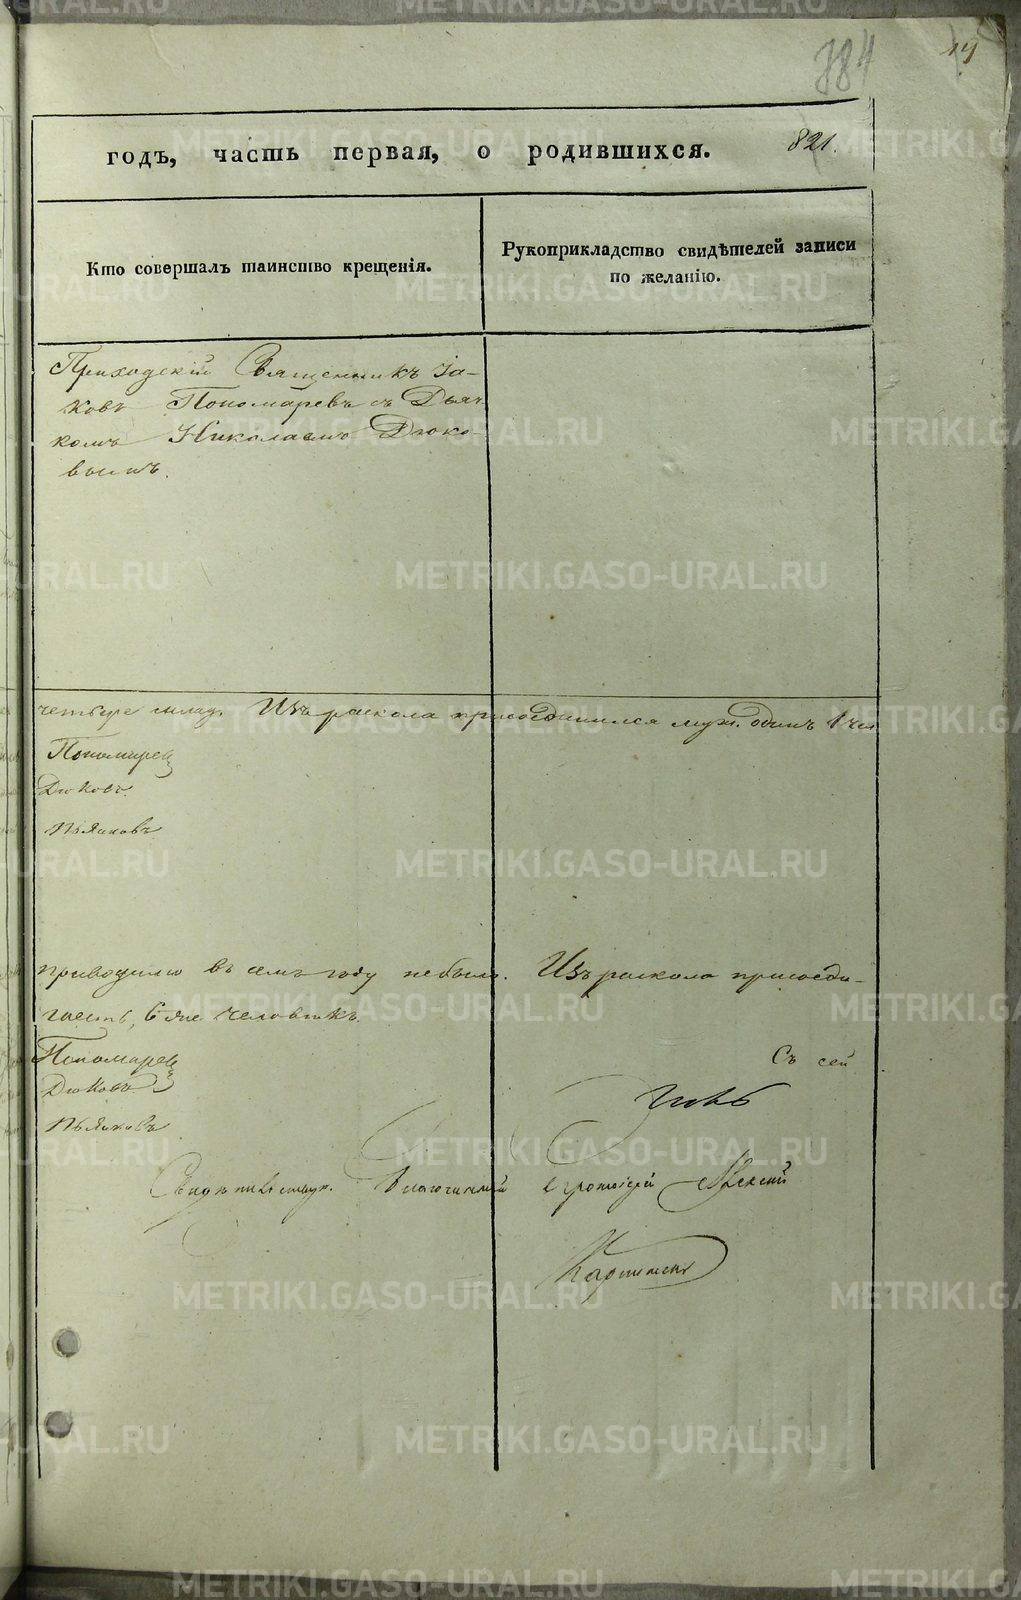 384
годъ, часть первая, о родившихся.
821.
Кто совершалъ таинство крещенія.
Рукоприкладство свидѣтелей записи
по желанію.
Приходскій Священникъ Іа-
ковъ Пономаревъ съ Дьяч
комъ Николаемъ Дюко-
вымъ.
четыре млад. Изъ раскола присоединился муж. одинъ 1 чел
Пономарев
Дюковъ
Пьянковъ
приводимо въ семъ году небыло. Изъ раскола присоеди-
шесть, 6 человѣкъ.
Пономарев
Дюковъ
Пьянковъ
Съ сей
Свидѣтельствув. Благочинный Протоіерей Алексій
METRIKI.GASO-URAL.RU